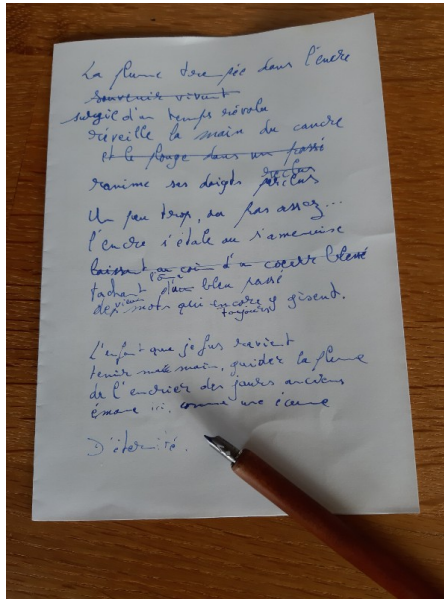 La plume trempée dans l'encre
souvenir vivant
surgie d'un temps révolu
réveille la main du cancre
et le plonge dans un passé
ranime ses doigts perclus
Un peu trop, ou pas assez...
l'encre s'étale ou s'amenuise
laissant au coin d'un coeur blessé
tachant d'un bleu passé
des vieux mots qui encore y gisent.
toujours
L'enfant que je fus revient
tenir ma main, guider la plume
de l'encrier des jours anciens
émane ... comme une écume
D'éternité.